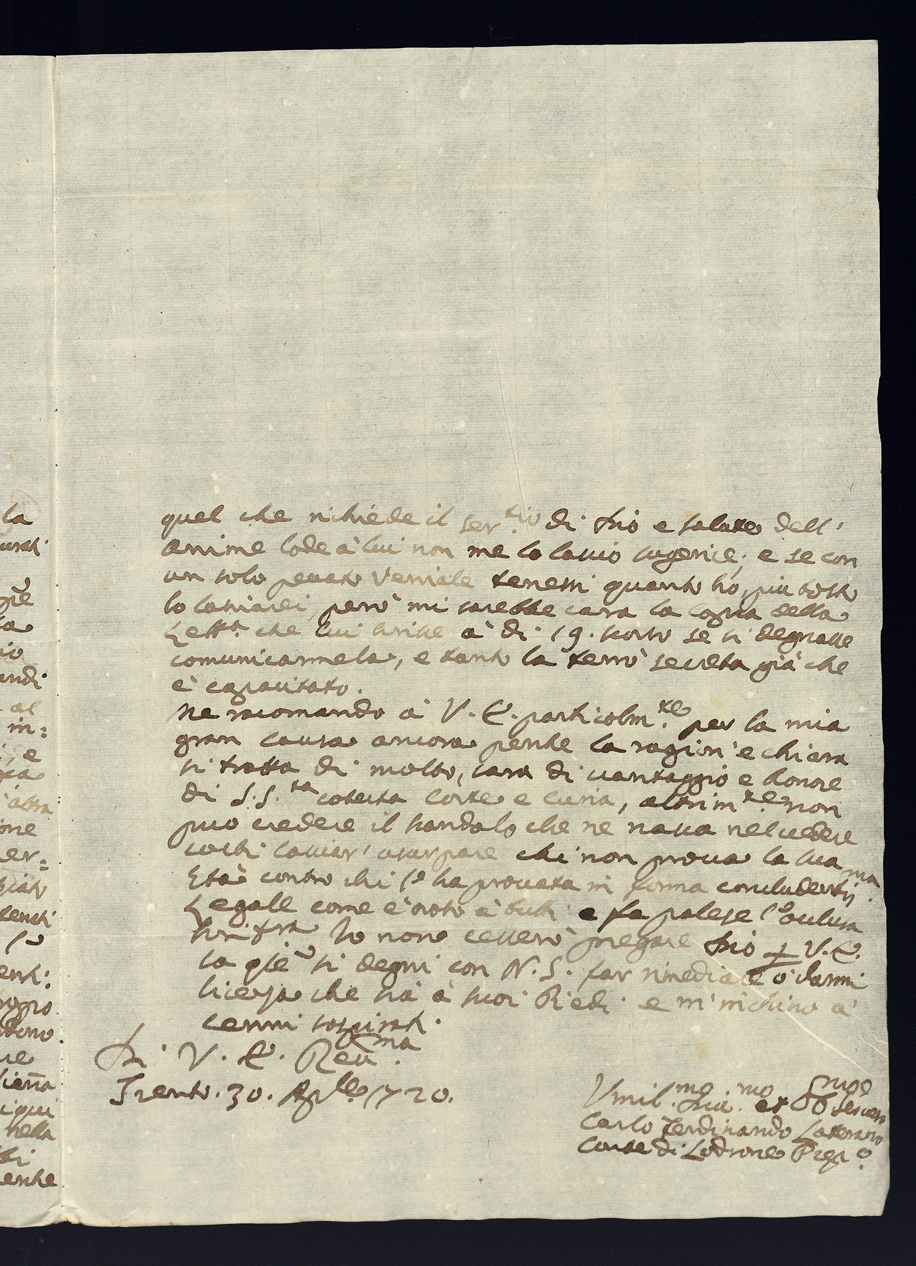 quel che richiede il ser.tio di Dio e salute dell'
anime lode à lui non me lo lascio sugerire; e se con
un solo pecato veniale tenessi quanto hò, più tosto
lo lasciarei, però mi sarebbe cara la copia della
Lett.a che lui scrisse à di 19. scorso se si degnasse
comunicarmela, e tanto la terrò secreta già che
è capacitato.
Me racomando à V. E. particolm.te per la mia
gran causa ancora perche la ragion' è chiara
si tratta di molto, sarà di vantaggio e honore
di S. S.tà cotesta Corte e Curia, altrim.te non
può credere il scandalo che ne nasca nel vedere
così lasciar' usurpare chi non prova la sua
Età contro chi l'ha provata in forma concludentis.ma
Legale come è noto à tutti e fa palese l'
Io non cesserò pregare Dio V. E.
la si degni con N. S. far rimediare ò darmi
licenza che sia à suoi Piedi e m'inchino à
cenni
Di V. E. Reu.ma
Trento. 30. Aplle 1720.
Vmil.mo et
Carlo Ferdinando
Conte di Lodrone
la
al
in:
e
er:
nella